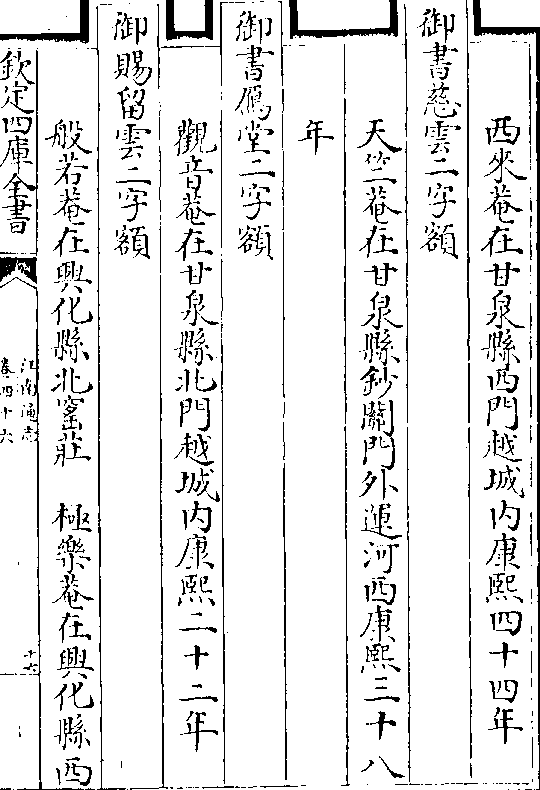 西來菴在甘泉縣西門越城内康熙四十四年
御書慈雲二字額
天竺菴在甘泉縣鈔關門外運河西康熙三十八
年
御書鴈堂二字額
觀音菴在甘泉縣北門越城内康熙二十二年
御賜留雲二字額
般若菴在興化縣北窰莊　極樂菴在興化縣西
欽定四庫全書
江南通志
卷四十六
十六